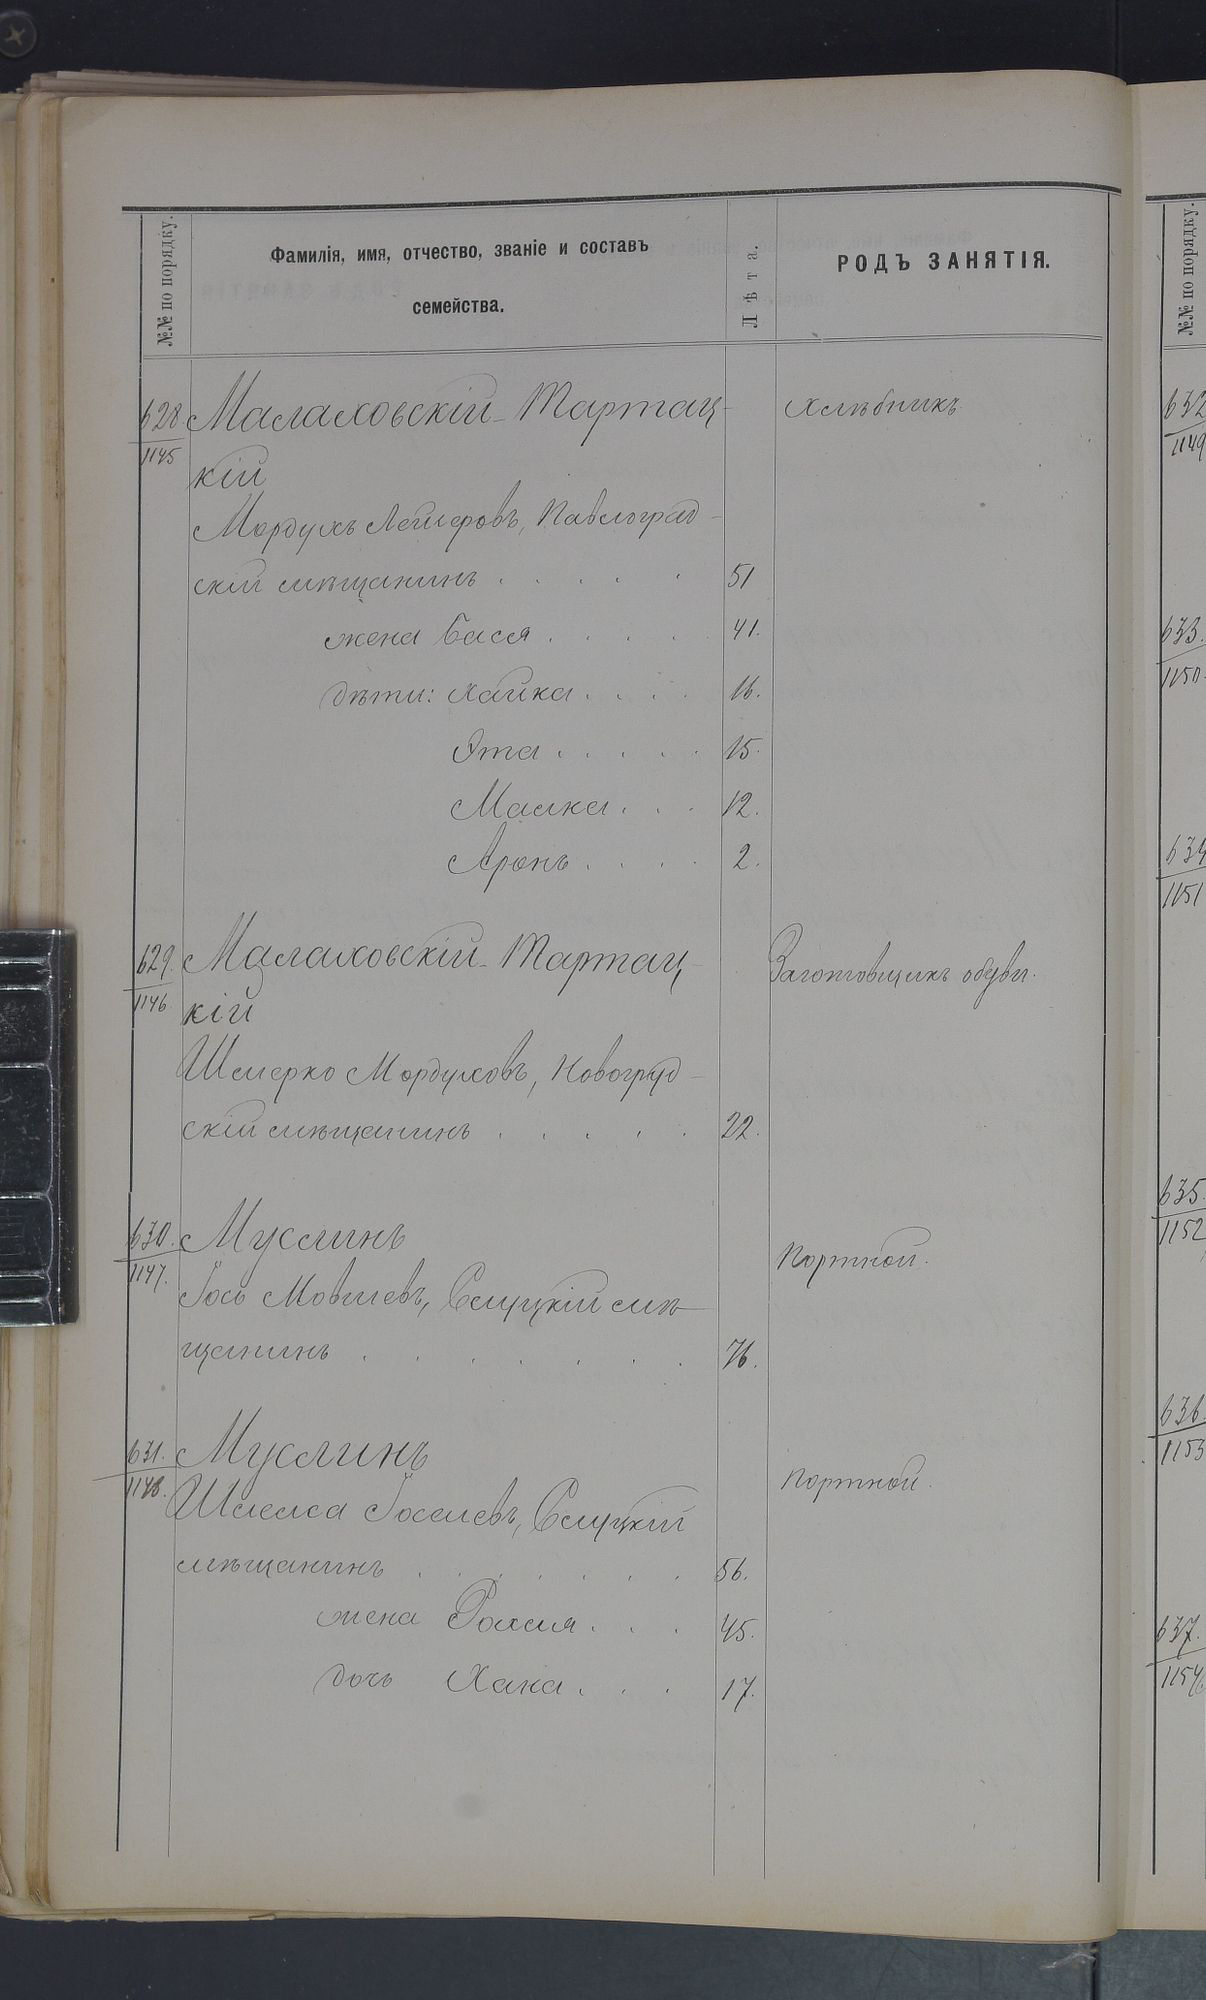 №№ по порядку.
Фамилія, имя, отчество, званіе и составъ
семейства.
Лѣта.
РОДЪ ЗАНЯТІЯ.
628. Малаховскій-Тартац- Хлѣбникъ
1145
кій
Мордухъ Лейзеровъ, Павлоград-
скій мѣщанинъ . . . . . 51
жена Бася . . . . . 41.
дѣти: Хайка . . . . 16.
Эта . . . . . 15.
Малка . . . 12.
Аронъ . . . . 2.
629. Малаховскій-Тартац- Заготовщикъ обуви.
1146
кій
Шмерко Мордуховъ, Новогруд-
скій мѣщанинъ . . . . . 22.
630. Муслинъ Портной.
1147.
Іось Мовшевъ, Слуцкій мѣ-
щанинъ . . . . . . . 76.
631. Муслинъ Портной.
1148.
Іоселевъ, Слуцкій
мѣщанинъ . . . . . . 56.
жена Рохля . . . 45.
дочь Хана . . . 17.
№№ по порядку.
632
1149
633.
1150.
634
1151
635.
1152
636.
1153
637.
1154